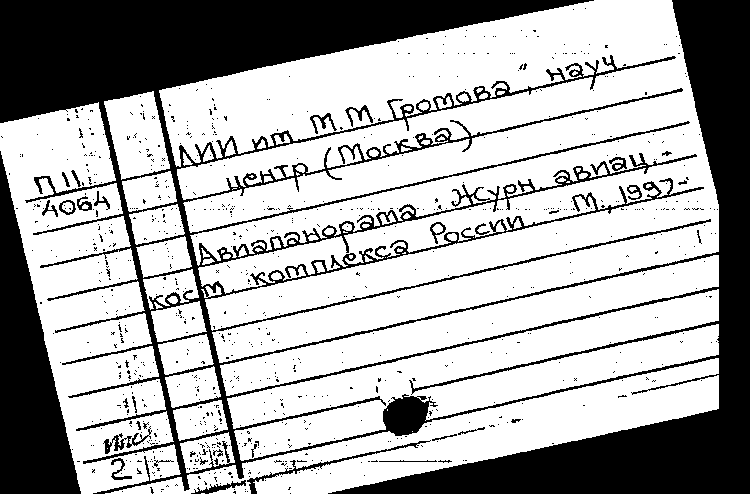 ЛИИ им. М.М. Громова", науч.
центр (Москва).
П 11
4064
Авиапанорама : Журн. авиац.-
косм. комплекса России. - М., 1997-
2